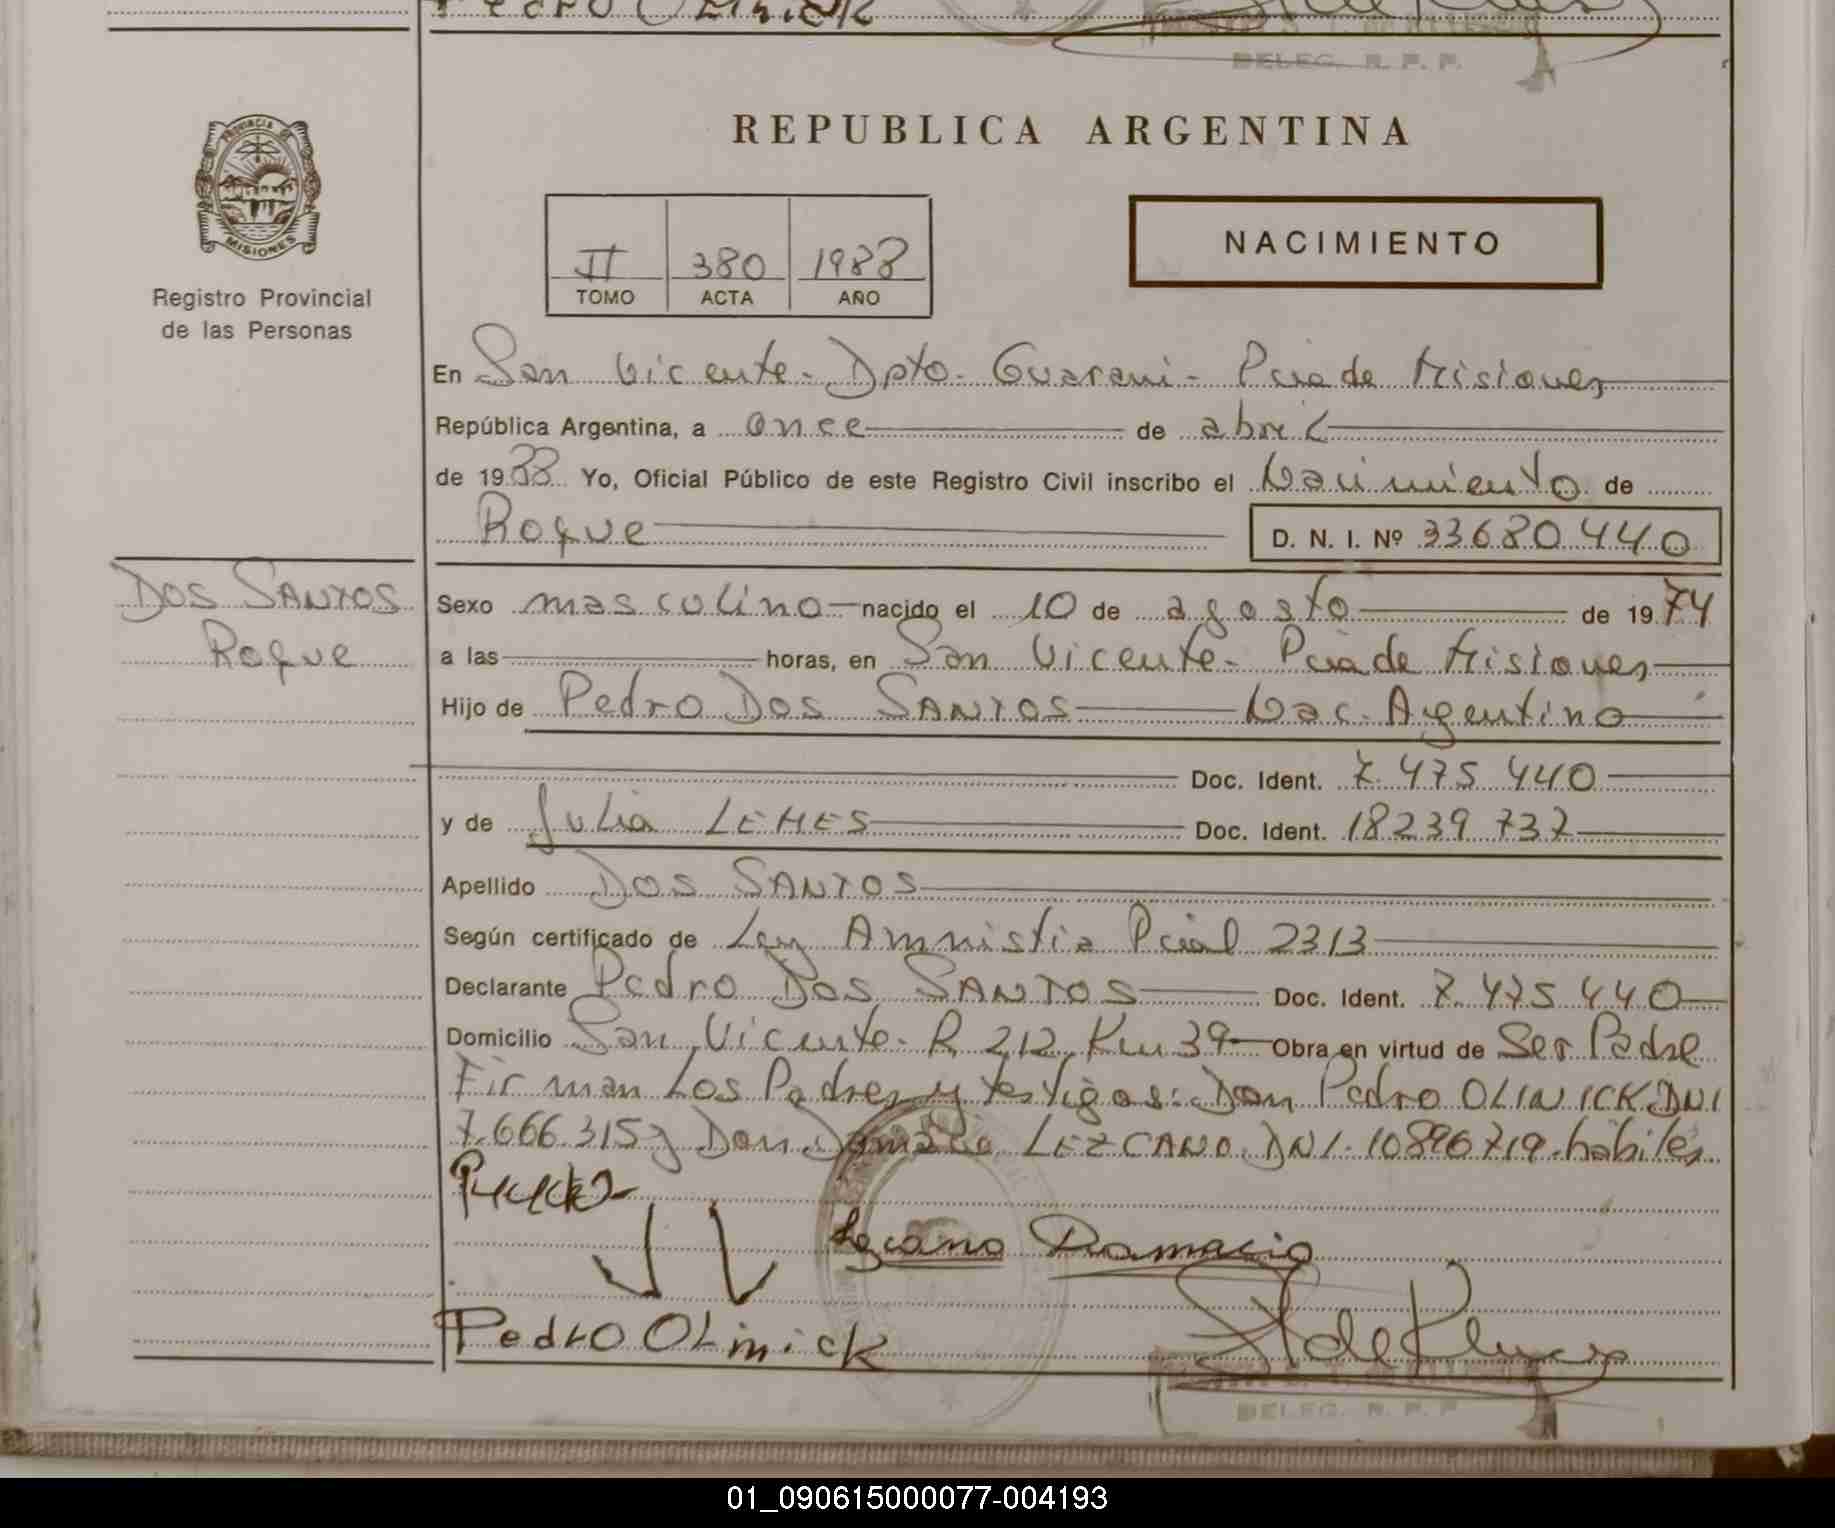 Pedro OLinick
DELEG. R. P. P.
PROVINCIA DE
MISIONES
Registro Provincial
de las Personas
REPUBLICA ARGENTINA
II 380 1988
TOMO ACTA AÑO
NACIMIENTO
En San Vicente - Dpto - Guarani - Pcia de Misiones
República Argentina, a once de abril
de 1988 Yo, Oficial Público de este Registro Civil inscribo el Nacimiento de
Roque D. N. I. Nº 33680440
DOS SANTOS
Roque
Sexo masculino nacido el 10 de agosto de 1974
a las horas, en San Vicente - Pcia de Misiones
Hijo de Pedro Dos SANTOS Nac. Argentino
Doc. Ident. 7.475 440
y de Julia LEMES Doc. Ident. 18239 737
Apellido DOS SANTOS
Según certificado de Ley Amnistia Pcial 2313
Declarante Pedro Dos SANTOS Doc. Ident. 7.475 440
Domicilio San Vicente - R 212 Km 39 Obra en virtud de Ser Padre
Firman Los Padres y testigos: Don Pedro OLINICK DNI
7.666.315 y Don Damacio LEZCANO DNI. 10896719 - hábiles
Lezcano Damacio
Pedro OLinick
DELEG. R. P. P.
01_090615000077-004193